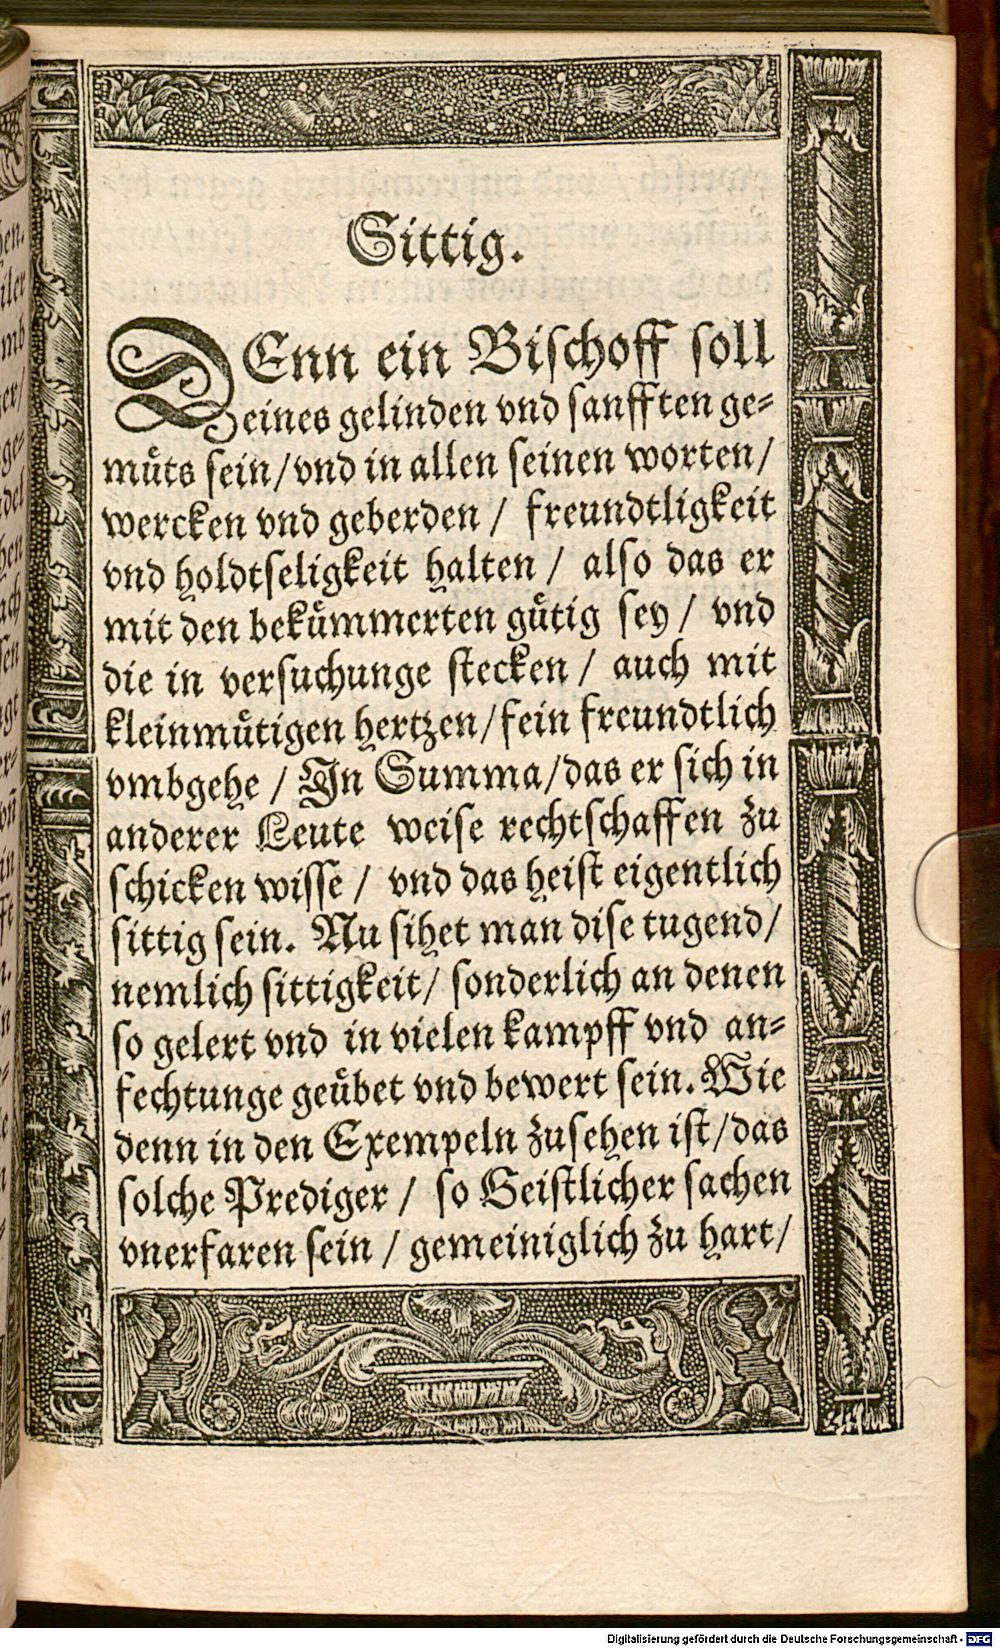 Sittig.
DEnn ein Bischoff soll
eines gelinden vnd sanfften ge⸗
muͤts sein/vnd in allen seinen worten/
wercken vnd geberden / freundtligkeit
vnd holdtseligkeit halten / also das er
mit den bekuͤmmerten guͤtig sey / vnd
die in versuchunge stecken / auch mit
kleinmuͤtigen hertzen/fein freundtlich
vmbgehe / In Summa/das er sich in
anderer Leute weise rechtschaffen zu
schicken wisse / vnd das heist eigentlich
sittig sein. Nu sihet man dise tugend/
nemlich sittigkeit/ sonderlich an denen
so gelert vnd in vielen kampff vnd an⸗
fechtunge geuͤbet vnd bewert sein. Wie
denn in den Exempeln zusehen ist/das
solche Prediger / so Geistlicher sachen
vnerfaren sein / gemeiniglich zu hart/
Digitalisierung gefördert durch die Deutsche Forschungsgemeinschaft - DFG